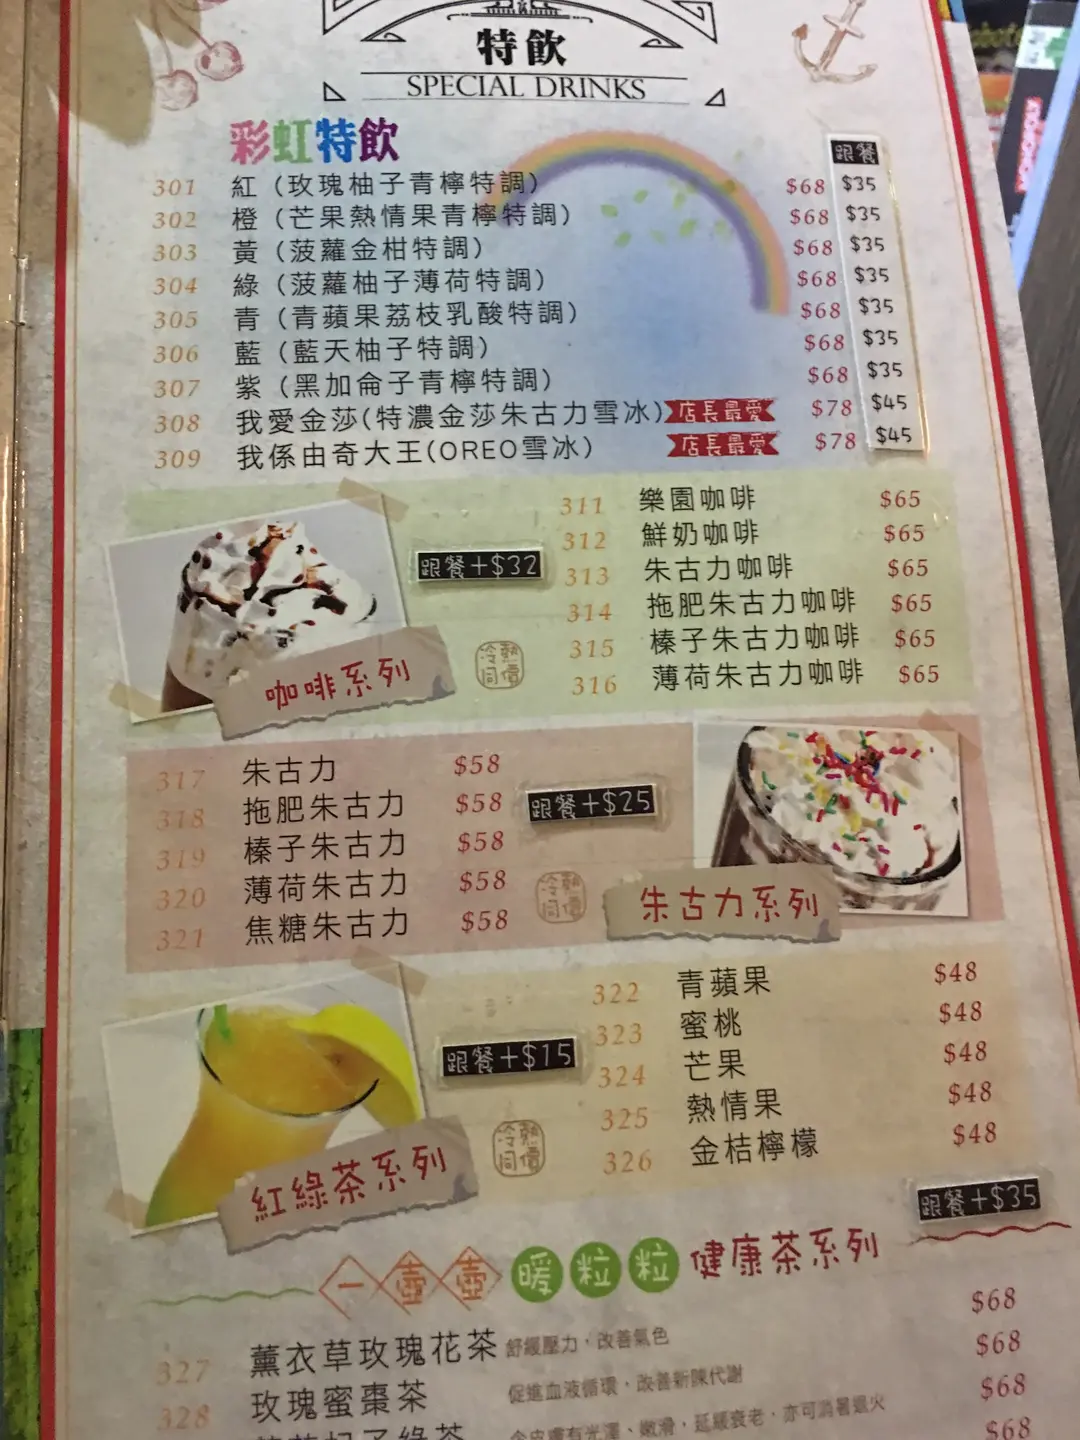 特飲
SPECIAL DRINKS
彩虹特飲
跟餐
301 紅（玫瑰柚子青檸特調） $68 $35
302 橙（芒果熱情果青檸特調） $68 $35
303 黃（菠蘿金柑特調） $68 $35
304 綠（菠蘿柚子薄荷特調） $68 $35
305 青（青蘋果荔枝乳酸特調） $68 $35
306 藍（藍天柚子特調） $68 $35
307 紫（黑加侖子青檸特調） $68 $35
308 我愛金莎(特濃金莎朱古力雪冰) 店長最愛 $78 $45
309 我係由奇大王(OREO雪冰) 店長最愛 $78 $45
咖啡系列
跟餐+$32
冷熱同價
311 樂園咖啡 $65
312 鮮奶咖啡 $65
313 朱古力咖啡 $65
314 拖肥朱古力咖啡 $65
315 榛子朱古力咖啡 $65
316 薄荷朱古力咖啡 $65
317 朱古力 $58
318 拖肥朱古力 $58
319 榛子朱古力 $58
320 薄荷朱古力 $58
321 焦糖朱古力 $58
跟餐+$25
冷熱同價
朱古力系列
紅綠茶系列
跟餐+$15
冷熱同價
322 青蘋果 $48
323 蜜桃 $48
324 芒果 $48
325 熱情果 $48
326 金桔檸檬 $48
跟餐+$35
一壺壺 暖粒粒 健康茶系列
327 薰衣草玫瑰花茶 舒緩壓力，改善氣色 $68
328 玫瑰蜜棗茶 促進血液循環，改善新陳代謝 $68
$68
$68